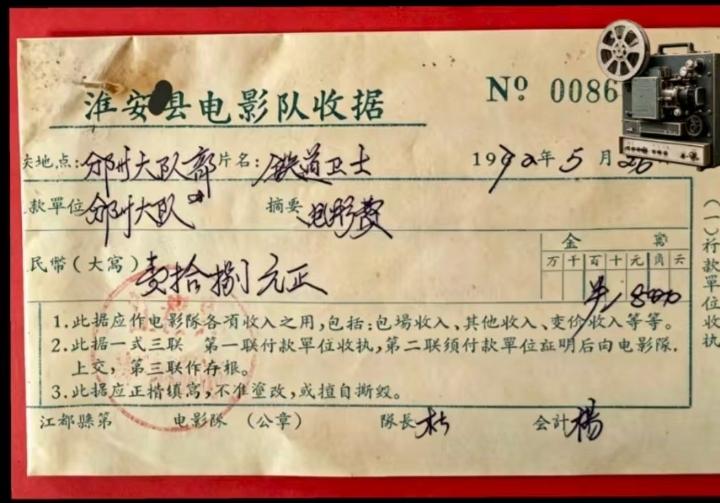 淮安县电影队收据
Nº 0086
地点：邵州大队部 片名：铁道卫士 1972年5月26
款單位 邵州大队 摘要 电影费
金 額
民幣（大寫） 壹拾捌元正 万千百十元角分
1800
1.此据应作电影隊各項收入之用，包括：包場收入、其他收入、变价收入等等。
2.此据一式三联 第一联付款單位收执，第二联须付款單位証明后向电影隊
上交，第三联作存根。
3.此据应正楷填寫，不准塗改，或擅自撕毀。
江都縣第 电影隊（公章） 隊長 杜 会計 楊
（一）付款單位收执